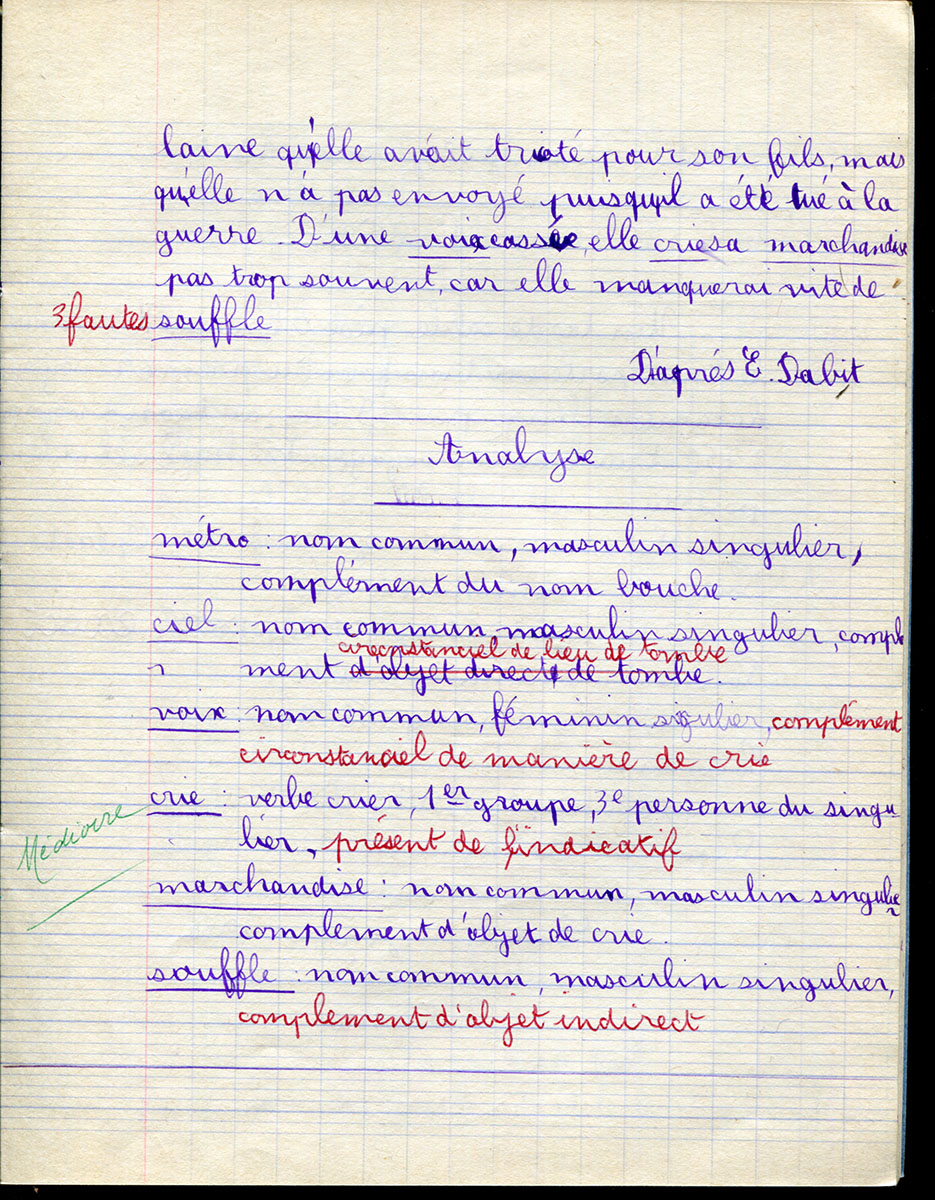 laine qu'elle avait tricoté pour son fils, mais
qu'elle n'a pas envoyé puisqu'il a été tué à la
guerre. D'une voix cassée, elle crie sa marchandise
pas trop souvent, car elle manquerai vite de
3 fautes souffle
D'aprés E. Dabit
Analyse
métro : nom commun, masculin singulier,
complément du nom bouche.
ciel : nom commun masculin singulier, complé
circonstanciel de lieu de tombe
ment d'objet direct de tombe.
voix : nom commun, féminin singulier, complément
circonstanciel de manière de crie
crie : verbe crier, 1er groupe, 3e personne du singu-
Médiocre
lier, présent de l'indicatif
marchandise : nom commun, masculin singulier
complement d'objet de crie.
souffle : nom commun, masculin singulier,
complement d'objet indirect